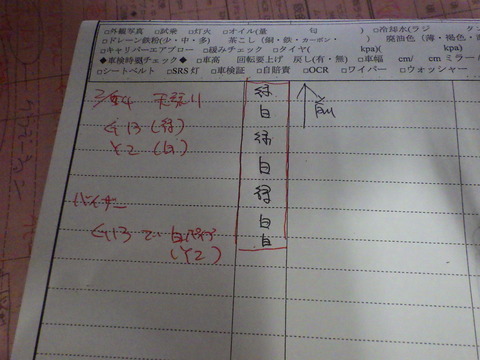 □外観写真 □試乗 □灯火 □オイル(量 匂 ) □冷却水(ラジ タン
□ドレーン鉄粉(少・中・多) 茶こし(銅・鉄・カーボン・ ) 廃油色(薄・褐色・
□キャリパーエアブロー □緩みチェック □タイヤ( kpa)( kpa)
◆車検特殊チェック◆ □車高 回転要上げ 戻し(有・無) □車幅 cm/ cmミラー/
□シートベルト □SRS灯 □車検証 □自賠責 □OCR □ワイパー □ウォッシャー
天張り
G13(緑)
Y2(白)
バイザー
G13で 白パイプ
(Y2)
緑
白
緑
白
緑
白
白
前